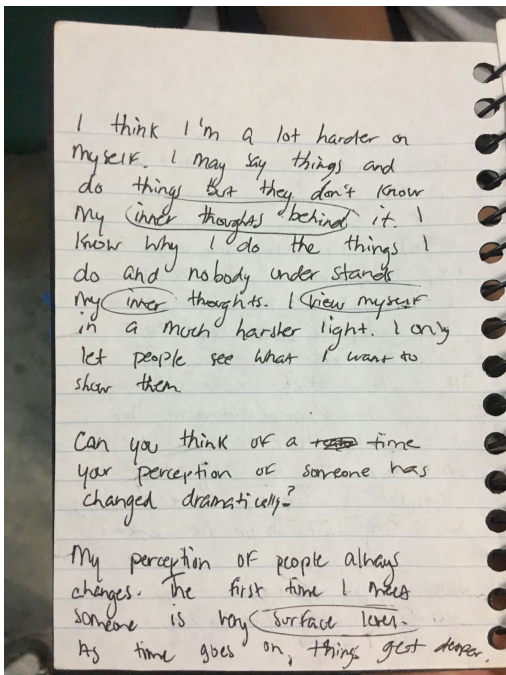 I think I'm a lot harder on
myself. I may say things and
do things but they don't know
my inner thoughts behind it. I
know why I do the things I
do and nobody under stands
my inner thoughts. I view myself
in a much harsher light. I only
let people see what I want to
show them
Can you think of a time
your perception of someone has
changed dramatically?
My perception of people always
changes. The first time I meet
someone is very surface level.
As time goes on, things gest deeper.